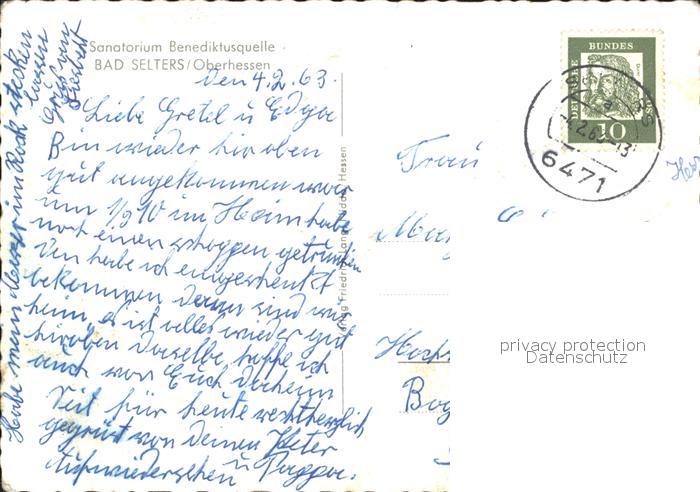 Sanatorium Benediktusquelle
BAD SELTERS/Oberhessen
den 4.2.63.
Liebe Gretel u Edgar
Bin wieder hir oben
gut angekommen war
um 1/2 10 im Heim habe
noch einen schoppen getrunken
den habe ich eingeschenkt
bekommen dann sind wir
heim, es ist alles wieder gut
hiroben Dasselbe hoffe ich
auch von Euch Daheim
Seit für heute rechtherzlich
gegrüst von Deinen Peter
Aufwiedersehen u Pappa.
Habe mein Messer im Rock stecken
lassen
Gruß von
Verlag Friedrich Lang Hessen
Frau
Hochs
DEUTSCHE BUNDESPOST
10
2.63-13
6471
privacy protection
Datenschutz